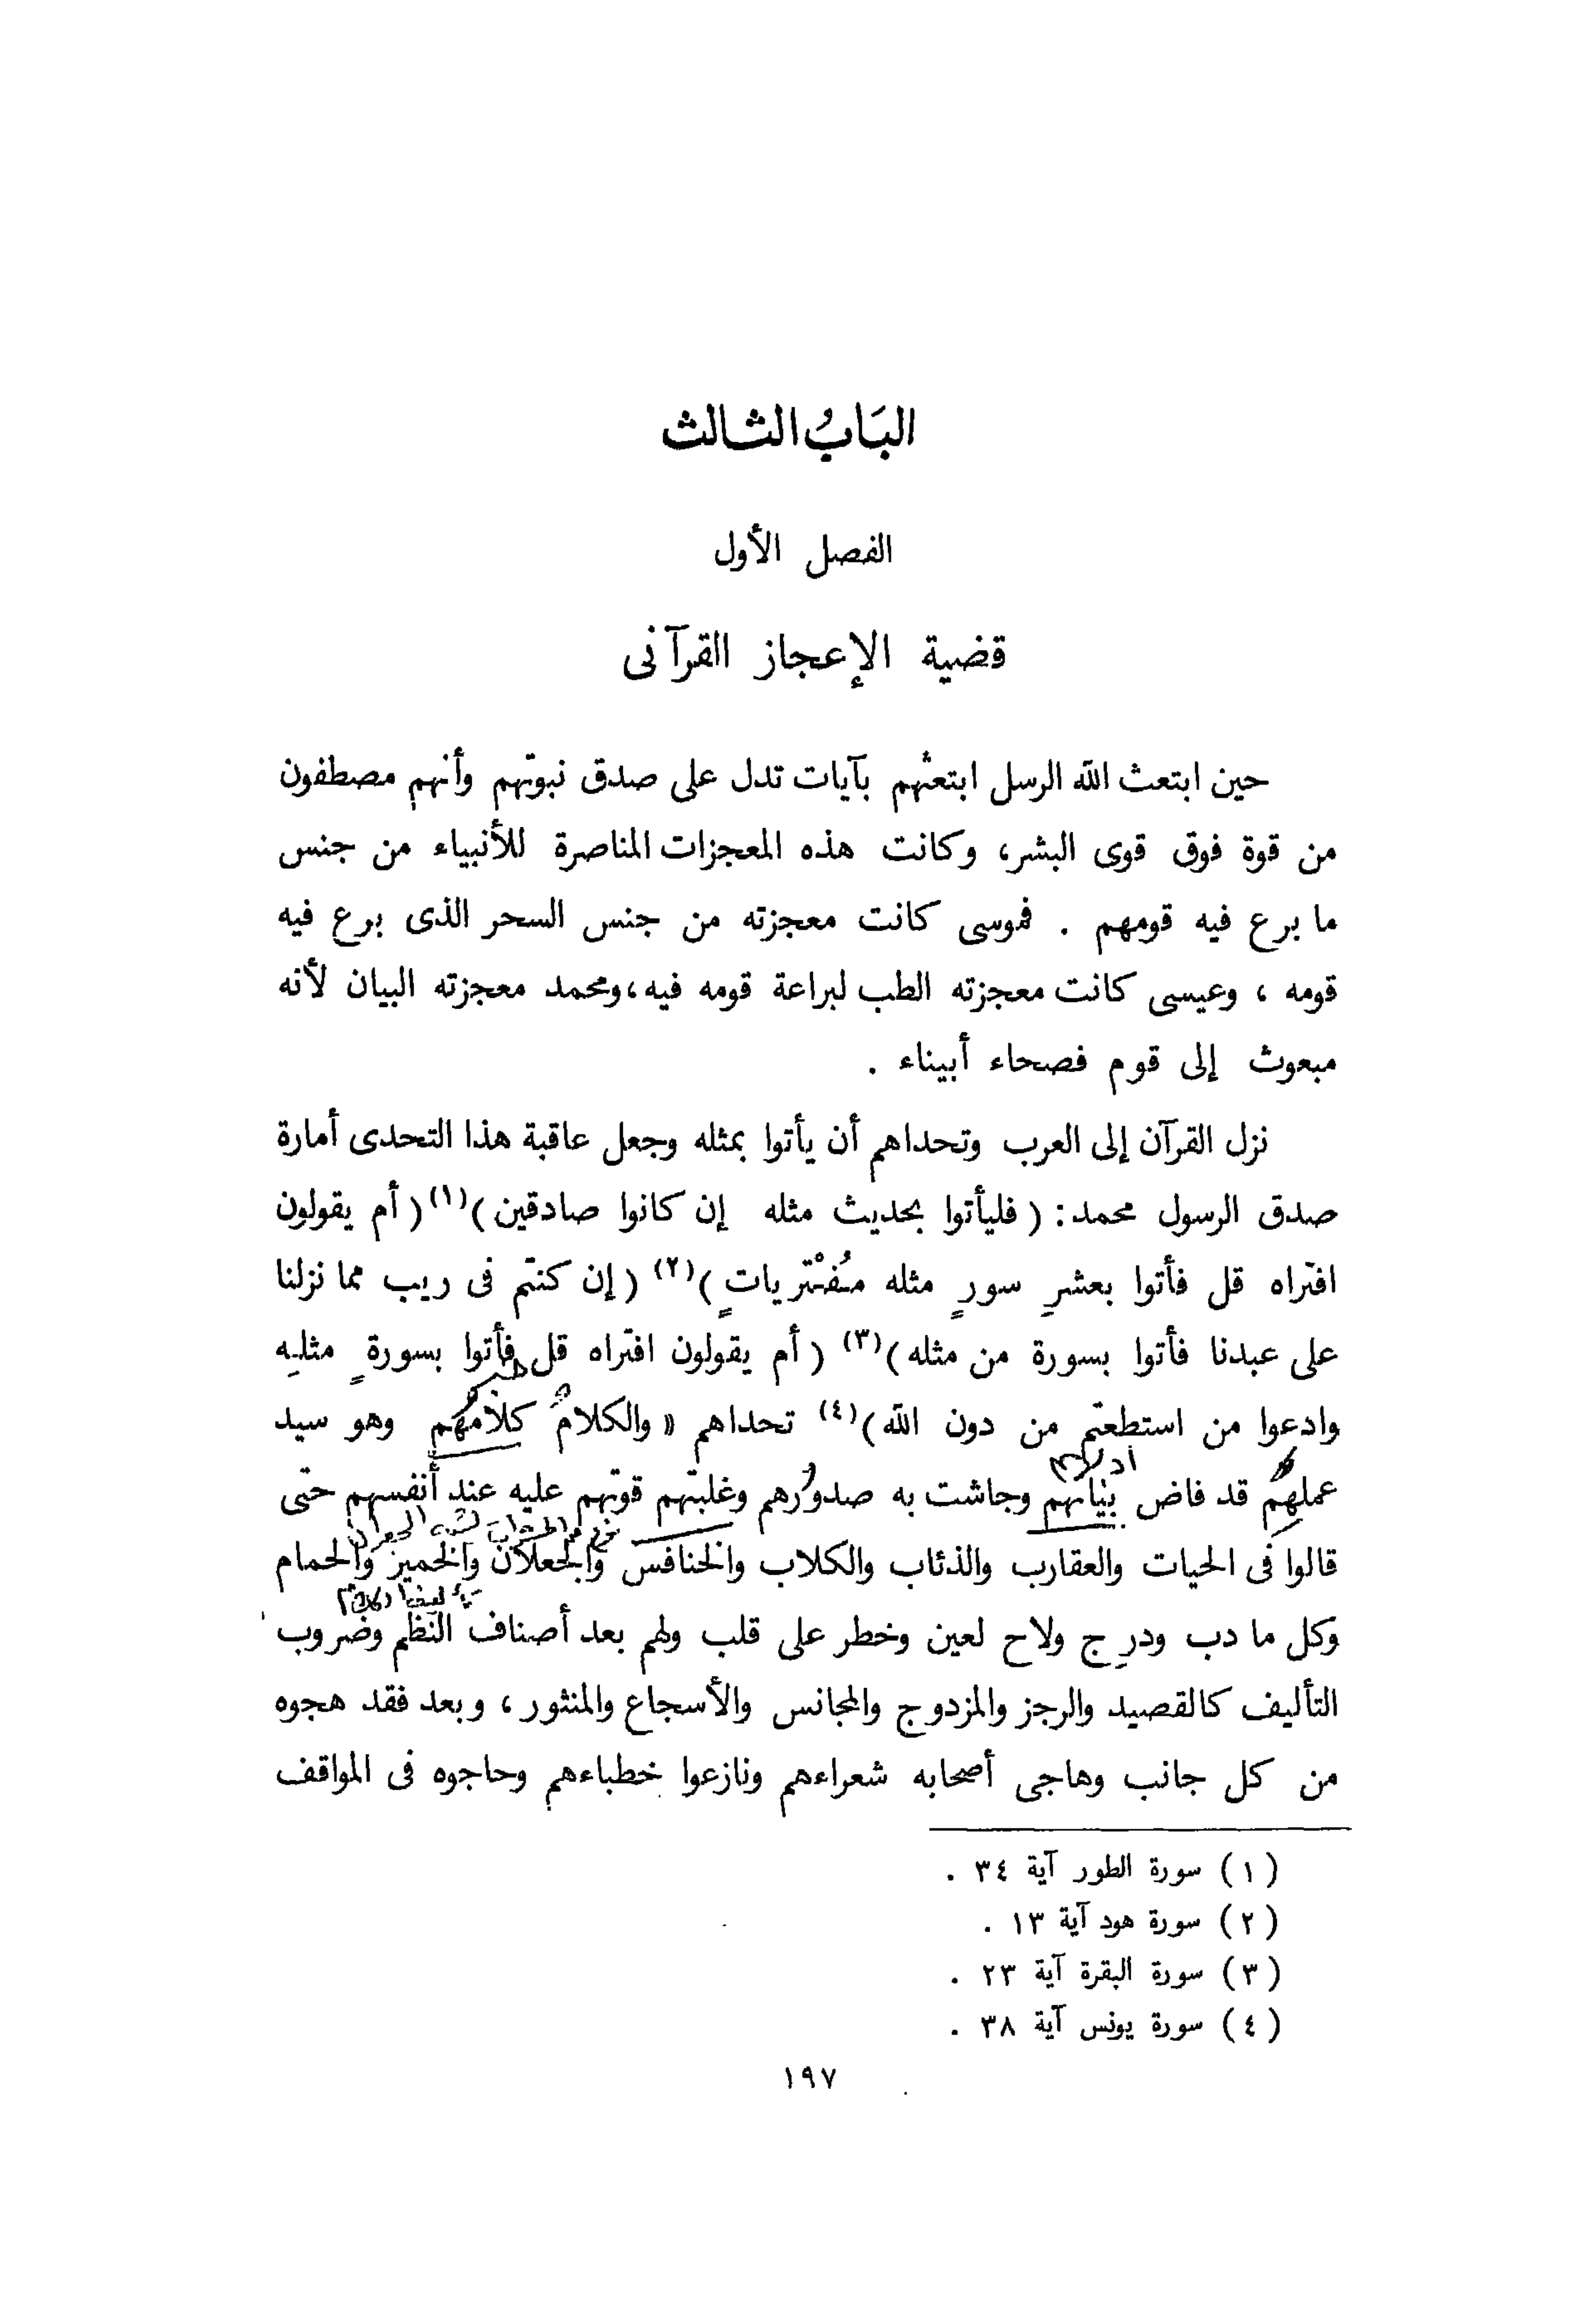 البَابُ الثالث
الفصل الأول
قضية الإعجاز القرآنى
حين ابتعث الله الرسل ابتعثهم بآيات تدل على صدق نبوتهم وأنهم مصطفون
من قوة فوق قوى البشر، وكانت هذه المعجزات المناصرة للأنبياء من جنس
ما برع فيه قومهم . فموسى كانت معجزته من جنس السحر الذى برع فيه
قومه ، وعيسى كانت معجزته الطب لبراعة قومه فيه، ومحمد معجزته البيان لأنه
مبعوث إلى قوم فصحاء أبيناء .
نزل القرآن إلى العرب وتحداهم أن يأتوا بمثله وجعل عاقبة هذا التحدى أمارة
صدق الرسول محمد : ( فليأتوا بحديث مثله إن كانوا صادقين )(١) ( أم يقولون
افتراه قل فأتوا بعشرِ سورٍ مثله مُفْتريات ٍ)(٢) ( إن كنتم فى ريب مما نزلنا
على عبدنا فأتوا بسورة من مثله )(٣) ( أم يقولون افتراه قل فأتوا بسورة ٍ مثلِه
وادعوا من استطعتم من دون الله )(٤) تحداهم « والكلام كلامهم وهو سيد
عملهم قد فاض بيانهم وجاشت به صدورهم وغلبتهم قوتهم عليه عند أنفسهم حتى
قالوا فى الحيات والعقارب والذئاب والكلاب والخنافس والجعلان والحمير والحمام
وكل ما دب ودرج ولاح لعين وخطر على قلب ولهم بعد أصناف النظم وضروب
التأليف كالقصيد والرجز والمزدوج والمجانس والأسجاع والمنثور ، وبعد فقد هجوه
من كل جانب وهاجى أصحابه شعراءهم ونازعوا خطباءهم وحاجوه فى المواقف
( ١ ) سورة الطور آية ٣٤ .
( ٢ ) سورة هود آية ١٣ .
( ٣ ) سورة البقرة آية ٢٣ .
( ٤ ) سورة يونس آية ٣٨ .
١٩٧